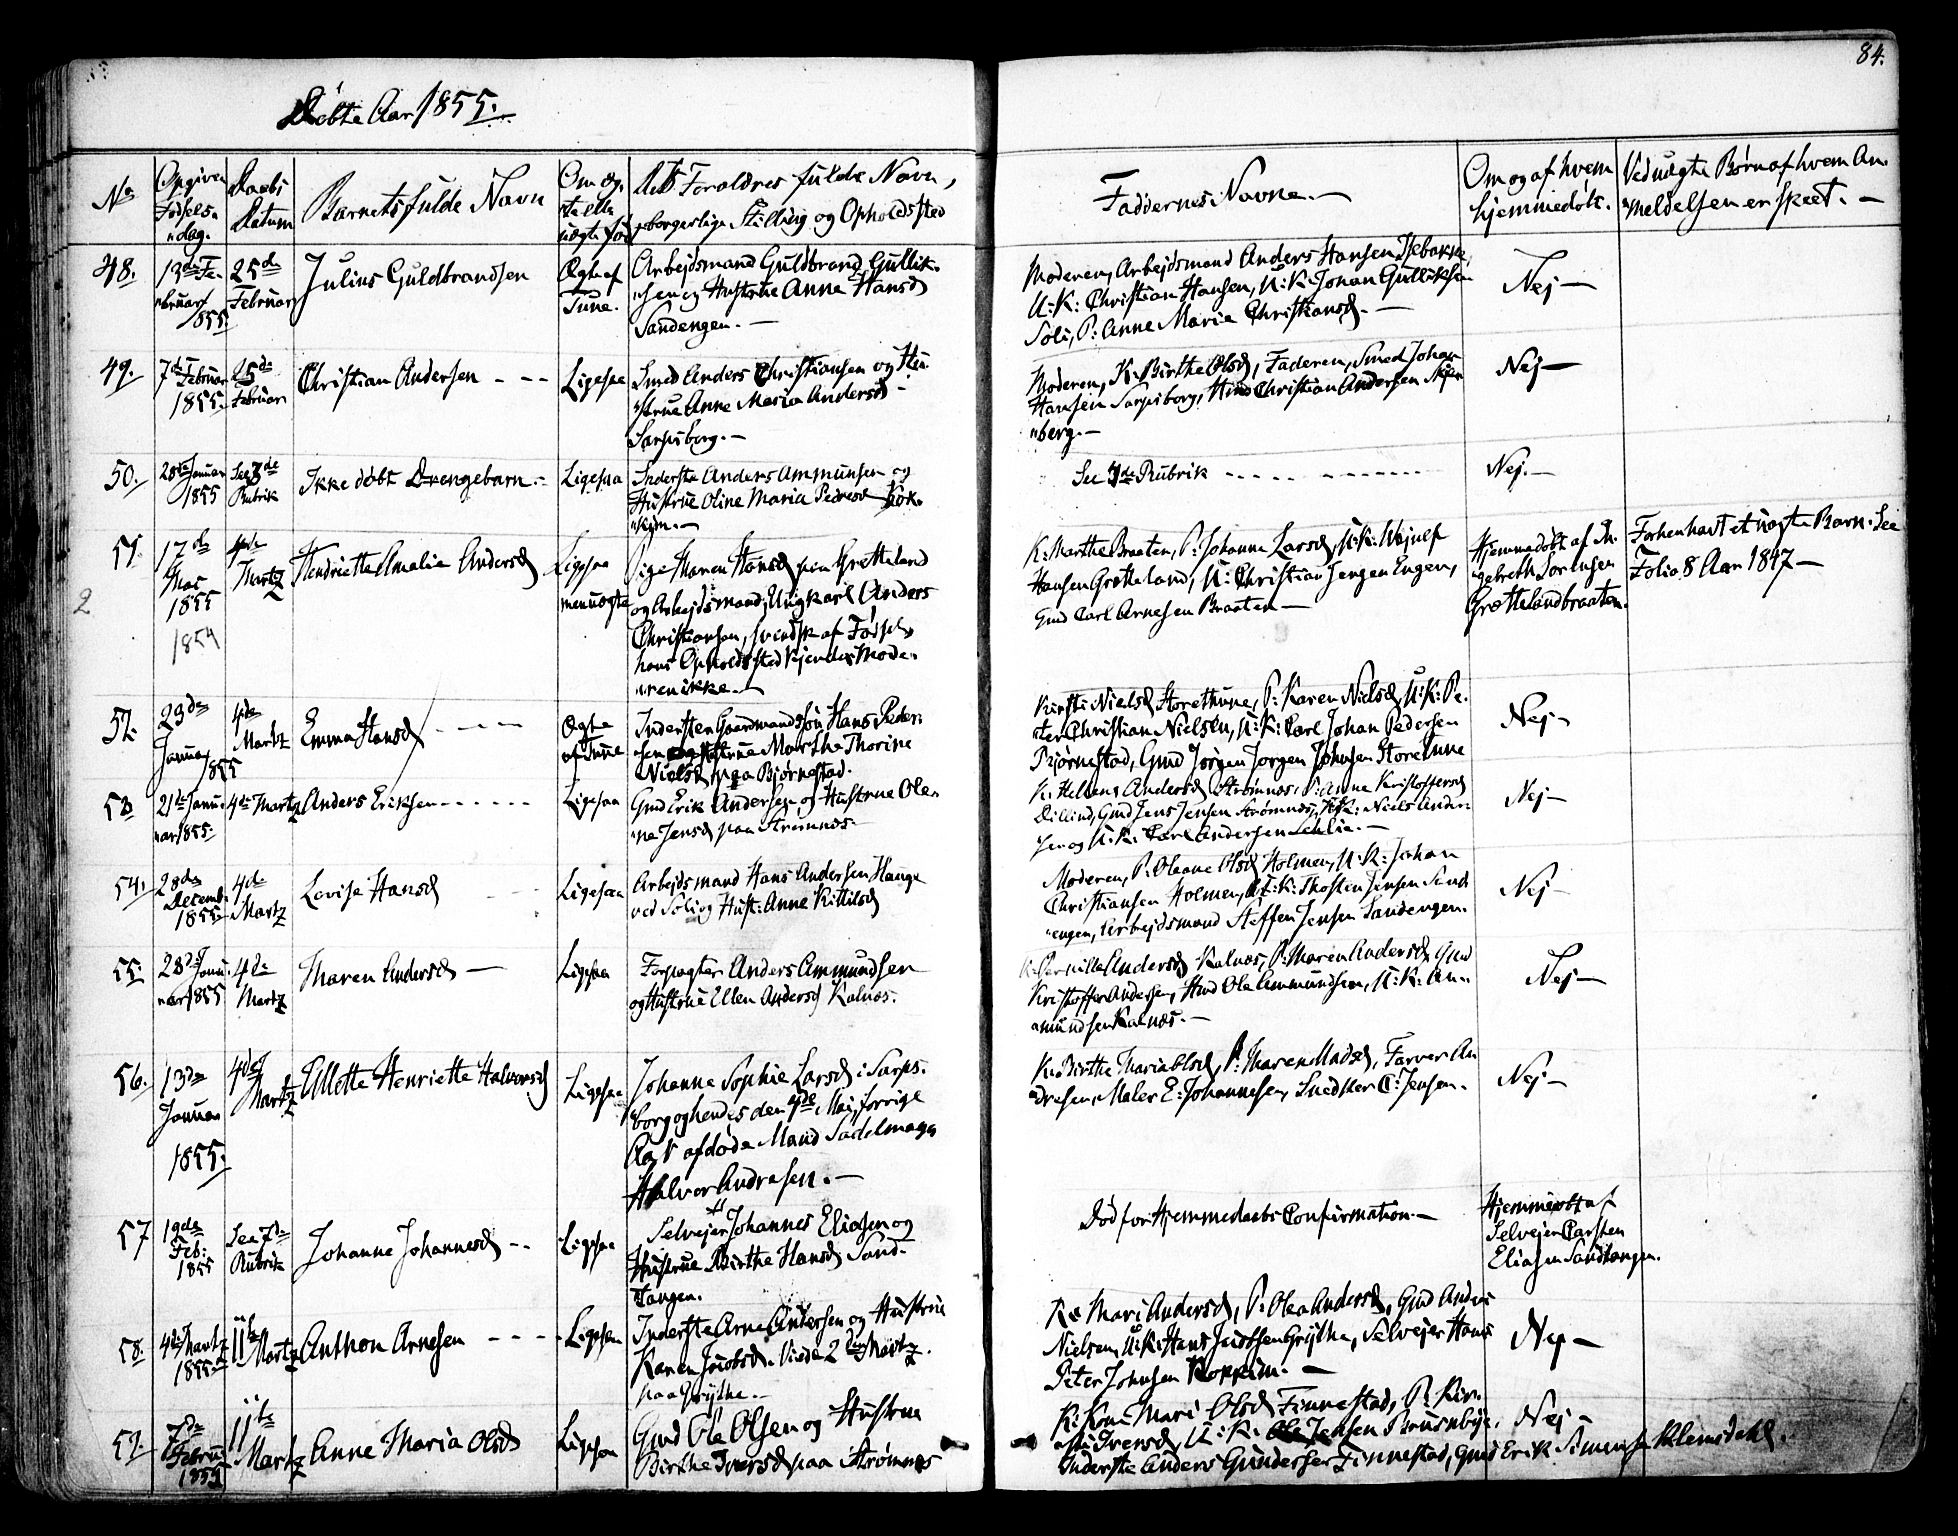 84.
Døbte Aar 1855.
No
Opgiven
Fødsels-
dag.
Daabs
Datum
Barnets fulde Navn
Om æg-
te elle
uægte fød
dets Foraldres fulde Navn,
borgerlige Stilling og Opholdssted
Faddernes Navne.—
Om og af hvem
hjemmedøbt.
Ved uægte Børn af hvem An-
meldelsen er skeet.—
48.
13de Fe-
bruar
1855.
25de
Februar
Julius Guldbrandsen
Ægte af
Tune.
Arbejdsmand Guldbrand Gullik-
sen og Hustrue Anne Hansd
Sandengen.—
Moderen, Arbejdsmand Anders Hansen Isebakke,
U:K: Christian Hansen, U:K: Johan Gulliksen
Soli, P: Anne Marie Christiansd.—
Nej—
49.
7de Februar
1855.
25de
Februar
Christian Andersen - - -
Ligesaa
Smed Anders Christiansen og Hu-
strue Anne Maria Andersd -
Sarpsborg.—
Moderen, K: Birthe Olsd, Faderen, Smed Johan
Hansen Sarpsborg, Christian Andersen
berg.—
Nej—
50.
28de Januar
1855
See 7de
Rubrik
Ikke døbt Drengebarn.-
Ligesaa
Inderste Anders Ammunsen og
Hustrue Oline Maria Pedersd
See 7de Rubrik - - - - - - - - - -
Nej.—
51.
17de
Mar
1855
1854
4de
Martz
Henriette Amalie Andersd
Ligesaa
men uægte
Pige Maren Hansd paa Grøtteland
og Arbejdsmand, Ungkarl Anders
Christiansen, svensk af Fødsel,
hans Opholdssted kjender Mode-
ren ikke.—
K: Marthe Braaten, P: Johanne Larsd, U:K:
Hansen Grøtteland, U: Christian Jørgen Engen,
Gmd Carl Arnesen Braaten—
Hjemmedøbt af In-
gebreth Sørensen
Grøttelandbraaten.
Forhen havt et uægte Barn. See
Folio 8 Aar 1847—
2
52.
23de
Januar
1855
4de
Martz
Emma Hansd - - - -
Ægte
af Tune
Hans Peder-
sen og Hustrue Marthe Thorine
Nielsd paa Bjørnestad.
Kirsti Nielsd Storethune, P: Karen Nielsd, U:K: Pe-
ter Christian Nielsen, U:K: Carl Johan Pedersen
Bjørnestad, Gmd Jørgen Johnsen Storetune
Nej—
53
21de Janu-
ar 1855.
4de Martz
Anders Eriksen - - - - - -
Ligesaa
Gmd Erik Andersen og Hustrue Ole-
ne Jensd paa Strømnæs—
K: Hellene Andersd Strømnæs, P: Anne Kristoffersd
Gmd Jens Jensen Strømnæs, U:K: Niels Ander-
sen og U:K: Carl Andersen—
Nej—
54.
28de
Decemb-
1855.
4de
Martz
Lovise Hansd
Ligesaa
Arbejdsmand Hans Andersen Hauge
ved Soli og Hust: Anne Kittilsd
Moderen, P: Oleane Olsd Holmen, U:K: Johan
Christiansen Holmen, U:K: Thosten Jensen Sand-
engen, Arbejdsmand Steffen Jensen Sandengen.
Nej—
55.
28de Janu-
ar 1855
4de
Martz
Maren Andersd —
Ligesaa
Forpagter Anders Ammundsen
og Hustrue Ellen Andersd Kalnæs.
K: Pernille Andersd Kalnæs, P: Maren Andersd, Gmd
Kristoffer Andersen, Ole Ammundsen, U:K: An-
amundsen Kalnæs.—
Nej—
56.
13de
Januar
1855.
4de
Martz
Ellotte Henriette Halvorsd
Ligesaa
Johanne Sophie Larsd i Sarps-
borg og hendes den 4de Mai forrige
Aar afdøde Mand Sadelmager
Halvor Andresen.—
K: Birthe Maria Olsd, P: Maren Madsd, Farver An-
dresen, Maler E: Johannesen, Snedker C: Jensen.
Nej—
57
19de
Feb:
1855
See 7de
Rubrik
Johanne Johannesd - -
Ligesaa
Selvejer Johannes Eliasen og
Hustrue Birthe Hansd Sand-
tangen.
Død for Hjemmedaabs Confirmation.—
Hjemmedøbt af
Selvejer Carsten
Eliasen Sandtangen.
58.
4de Martz
1855
11te
Martz
Anthon Arnesen - - - -
Ligesaa
Inderste Arne Andersen og Hustrue
Karen Jacobsd. Viede 2den Martz.
paa Grythe.—
K: Mari Andersd, P: Olea Andersd, Gmd Anders
Nielsen, U:K: Hans Jacobsen Grythe, Selvejer Hans
Peter Johnsen—
Nej—
59.
7de
Februar
1855
11te
Martz
Anne Maria Olsd
Ligesaa
Gmd Ole Olsen og Hustrue
Birthe Iversd paa Strømnæs
K: Kone Mari Olsd Finnestad, P: Kir-
sti Iversd, U:K: Ole Jensen
Inderste Anders Gundersen Finnestad, Gmd Erik Simensen Klemsdahl.
Nej—